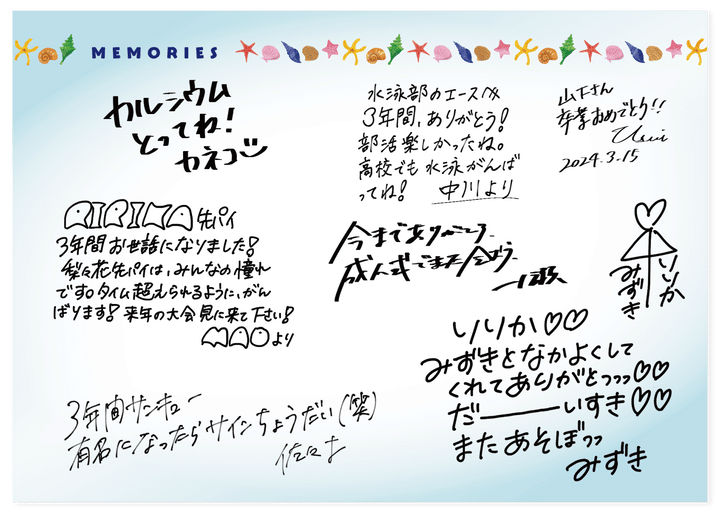 MEMORIES
カルシウム
とってね！
カネコ
水泳部のエースへ
3年間、ありがとう！
部活楽しかったね。
高校でも水泳がんば
ってね！ 中川より
山下さん
卒業おめでとう!!
2024.3.15
RIRIKA先パイ
3年間お世話になりました！
梨々花先パイは、みんなの憧れ
です。タイム超えられるように、がん
ばります！来年の大会見に来て下さい！
MAOより
今までありがとう。
成人式でまた会おう。
りりか
みずき
りりか♡♡
みずきとなかよくして
くれてありがとつつつ♡♡
だーーーいすき♡♡
またあそぼつつ
みずき
3年間サンキュー
有名になったらサインちょうだい(笑)
佐々木